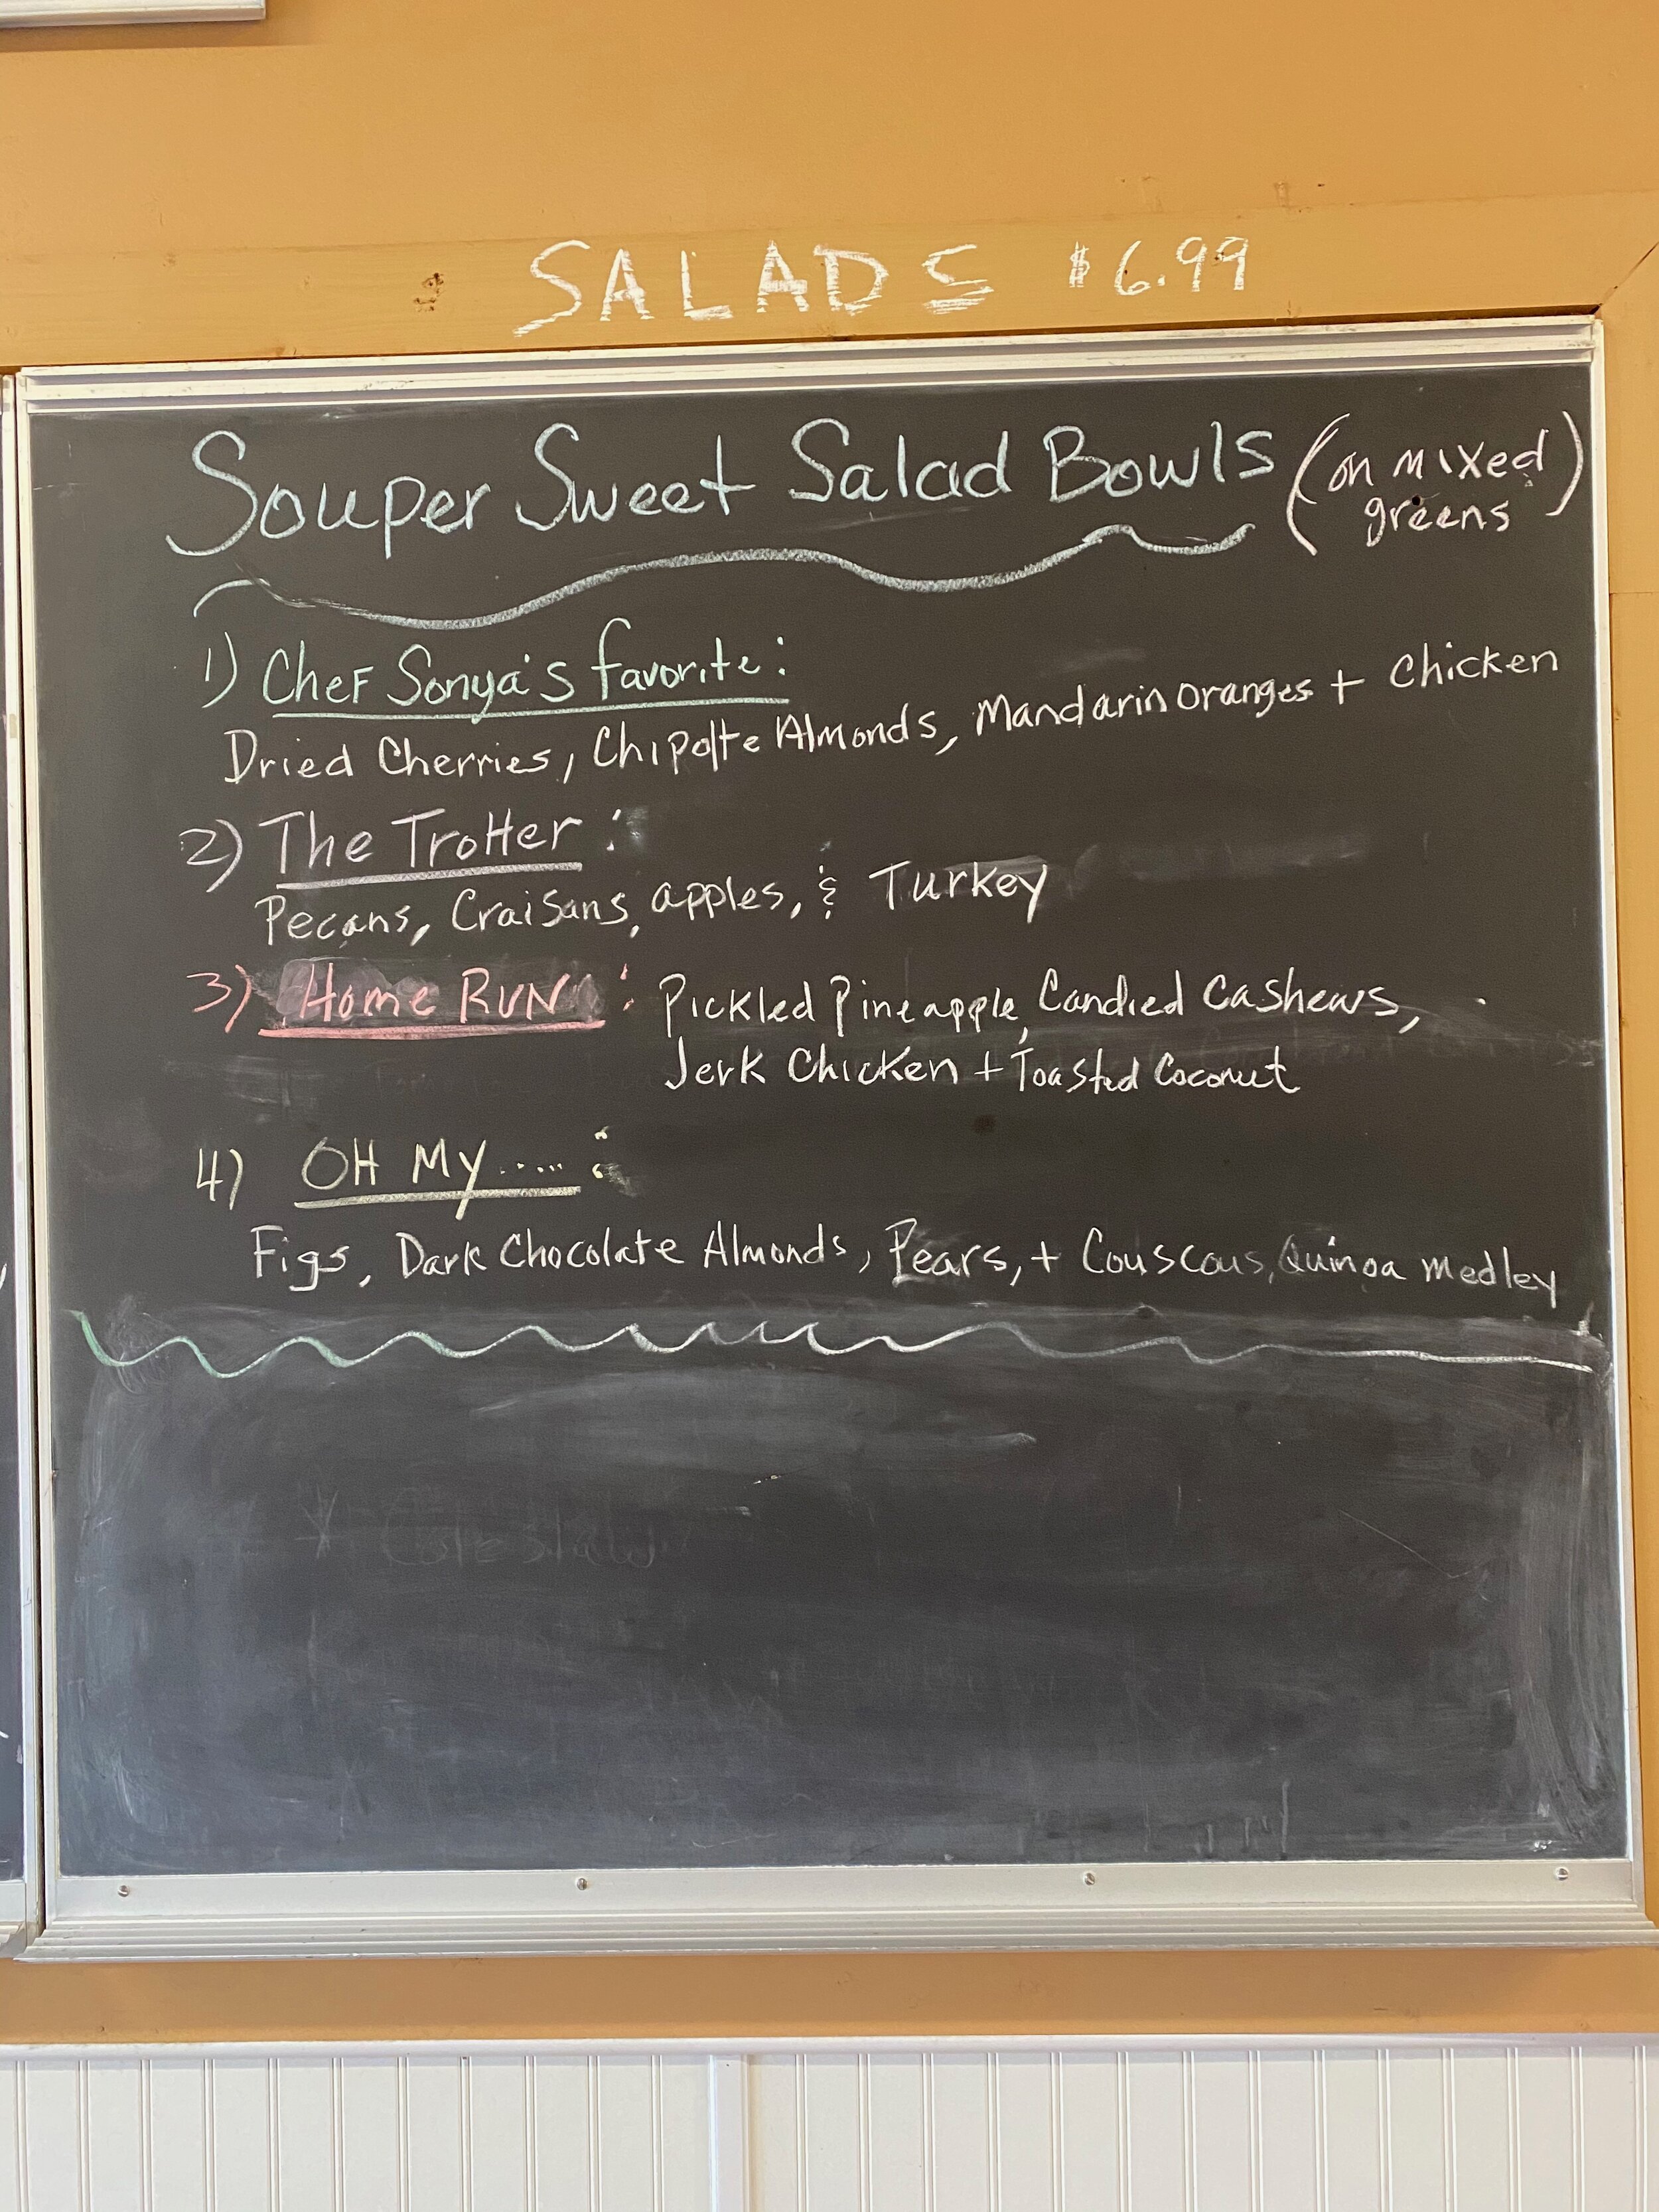 SALADS $6.99
Souper Sweet Salad Bowls (on mixed
greens)
1) Chef Sonya's favorite:
Dried Cherries, Chipolte Almonds, Mandarin oranges + Chicken
2) The Trotter:
Pecans, Craisans, apples, & Turkey
3) Home RUN: Pickled Pineapple, Candied Cashews,
Jerk Chicken + Toasted Coconut
4) OH MY.....:
Figs, Dark Chocolate Almonds, Pears, + Couscous, Quinoa medley
* Coleslaw